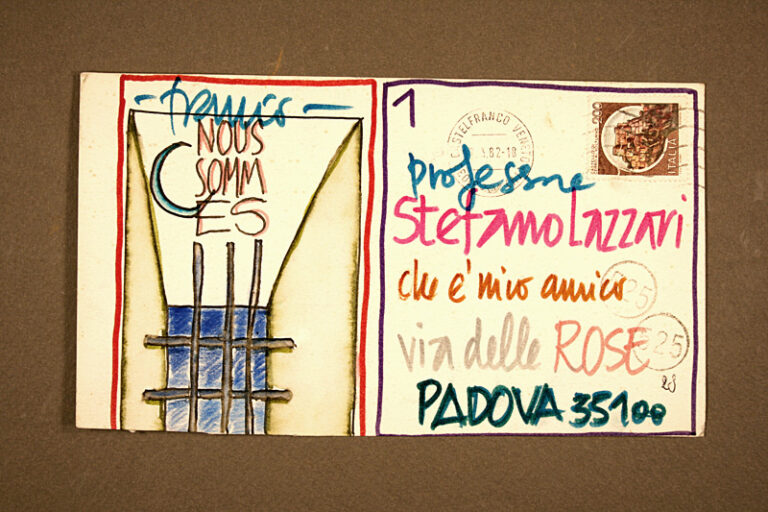 NOUS
SOMM
ES
1
CASTELFRANCO VENETO
.82-18
200
ITALIA
professore
Stefano Lazzari
che è mio amico
via delle ROSE
325
28
PADOVA 35100